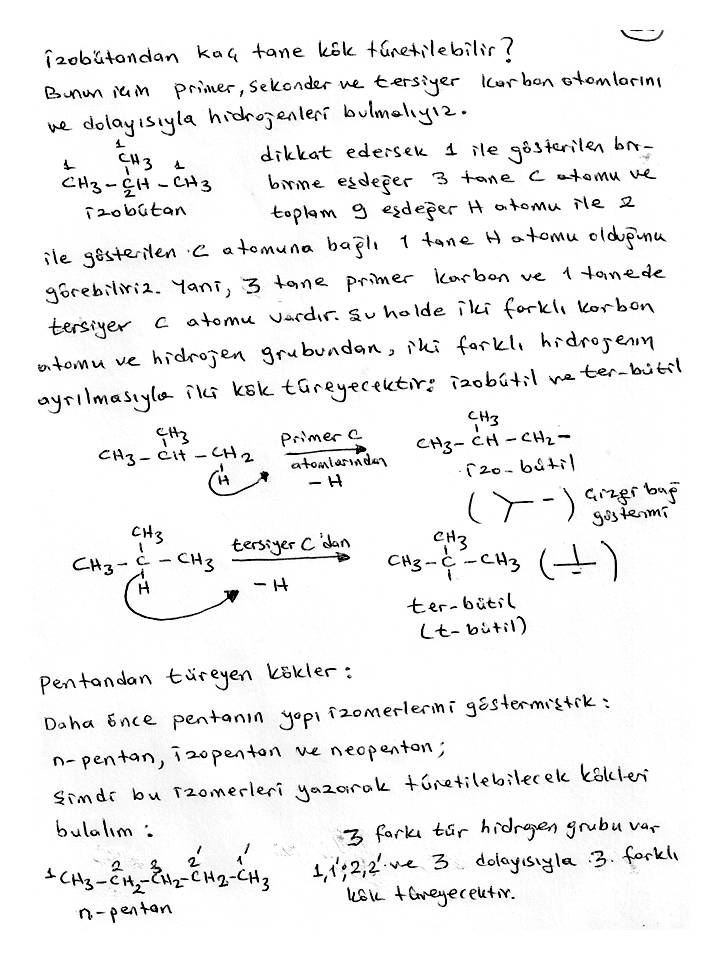 İzobütandan kaç tane kök türetilebilir?
Bunun için primer, sekonder ve tersiyer karbon atomlarını
ve dolayısıyla hidrojenleri bulmalıyız.
1
CH3
1 CH3 - CH - CH3 1
2
izobütan
dikkat edersek 1 ile gösterilen bir-
birine eşdeğer 3 tane C atomu ve
toplam 9 eşdeğer H atomu ile 2
ile gösterilen C atomuna bağlı 1 tane H atomu olduğunu
görebiliriz. Yani, 3 tane primer karbon ve 1 tanede
tersiyer C atomu vardır. Şu halde iki farklı karbon
atomu ve hidrojen grubundan, iki farklı hidrojenin
ayrılmasıyla iki kök türeyecektir: izobütil ve ter-bütil
CH3
CH3 - CH - CH2
H
Primer C
atomlarından
- H
CH3
CH3 - CH - CH2 -
izo-bütil
çizgi bağ
göstermi
CH3
CH3 - C - CH3
H
tersiyer C'dan
- H
CH3
CH3 - C - CH3
ter-bütil
(t-bütil)
Pentandan türeyen kökler:
Daha önce pentanın yapı izomerlerini göstermiştik:
n-pentan, izopentan ve neopentan;
Şimdi bu izomerleri yazarak türetilebilecek kökleri
bulalım:
2 3 2' 1'
1 CH3-CH2-CH2-CH2-CH3
n-pentan
3 farkı tür hidrojen grubu var
1,1'; 2,2' ve 3 dolayısıyla 3 farklı
kök türeyecektir.